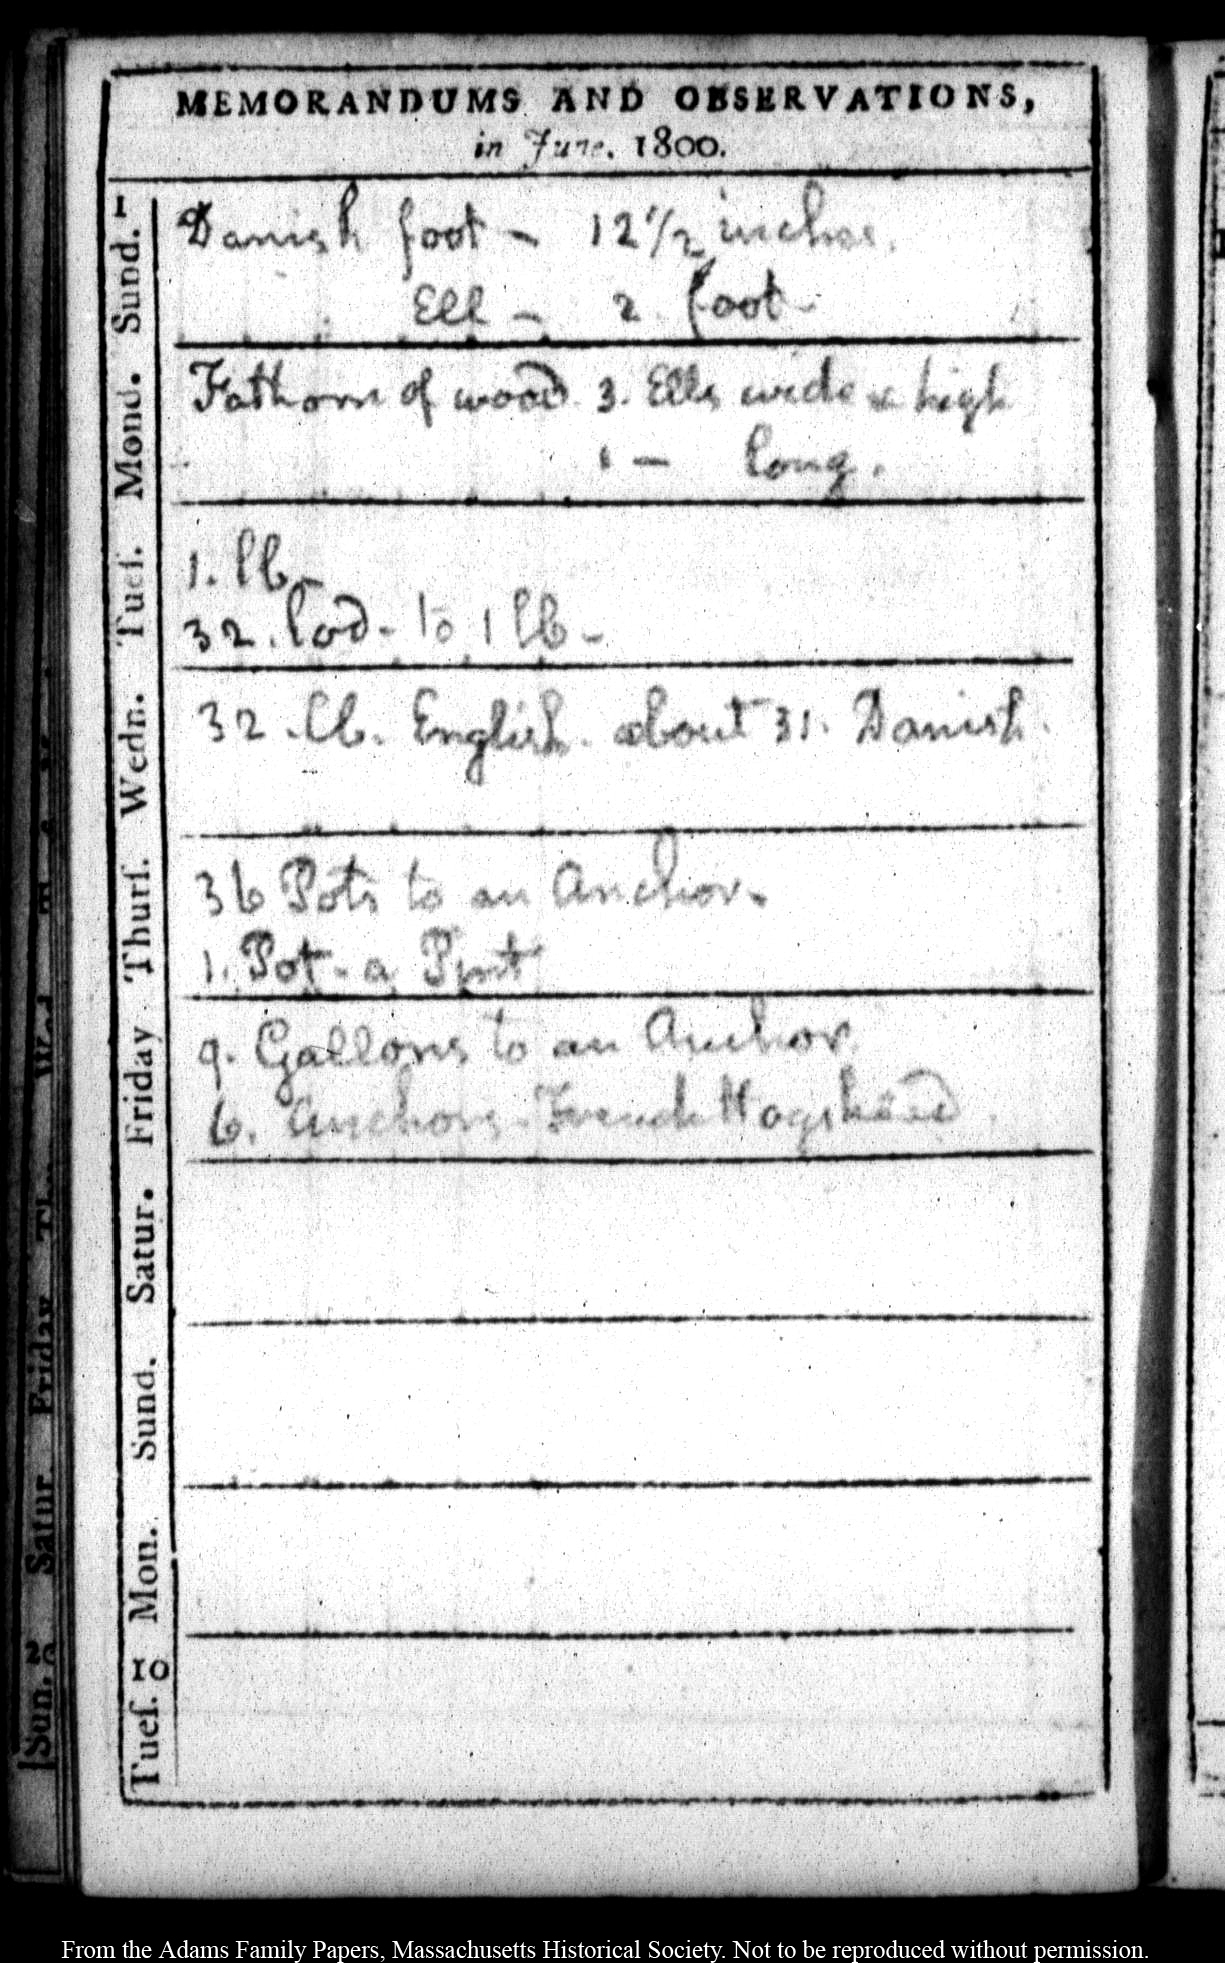 MEMORANDUMS AND OBSERVATIONS,
in June. 1800.
1
Sund.
Danish foot - 12 1/2 inches.
Ell - 2 foot -
Mond.
Fathom of wood 3. Ells wide & high
1 - long.
Tues.
1. lb -
32. lod - to 1 lb -
Wedn.
32. lb. English. about 31. Danish.
Thurs.
36 Pots to an Anchor.
1. Pot - a Pint
Friday
9. Gallons to an Anchor.
6. Anchors - French Hogshead.
Satur.
Sund.
Mon.
10
Tues.
Friday
Satur
20
Sun.
From the Adams Family Papers, Massachusetts Historical Society. Not to be reproduced without permission.